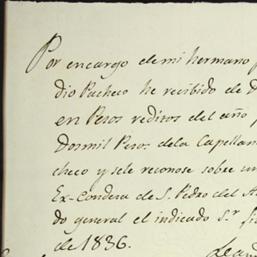 Por encargo de mi hermano
dio Pacheco he recibido de D
en Pesos reditos del año p
Dosmil Pesos dela Capellan
checo y sele reconose sobre un
Ex-Condesa de S. Pedro del A
do general el indicado S.r fi
de 1836.